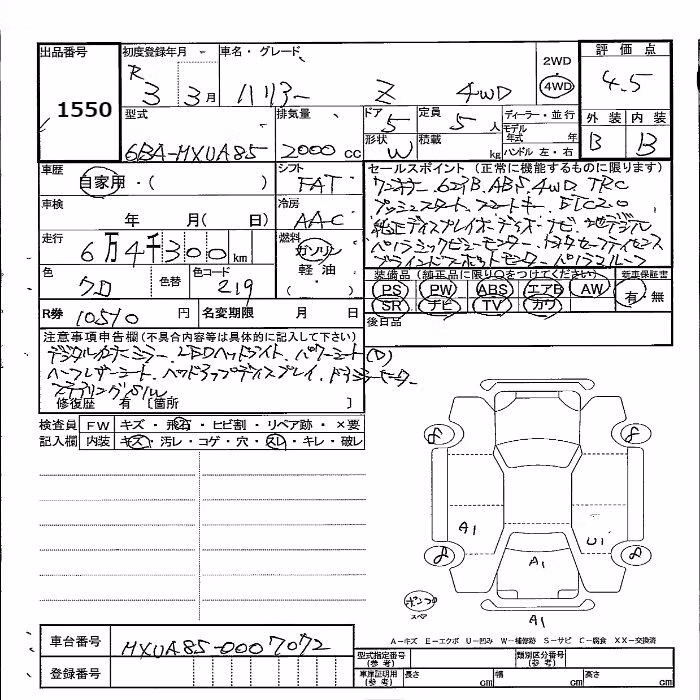 出品番号 初度登録年月 車名・グレード 2WD 評価点
R 3 3月 ハリアー Z 4WD 4WD 4.5
1550
型式 排気量 ドア 定員 ディーラー・並行 外装 内装
6BA-MXUA85 2000cc 5 5人 モデル年式 年 B B
形状 W 積載 kg ハンドル 左・右
車歴 シフト セールスポイント (正常に機能するものに限ります)
自家用・( ) FAT ワンオナー.623B.ABS.4WD.TRC
車検 冷房 プッシュスタート.スマートキー.ETC2.0
年 月( 日) AAC 純正ディスプレイオーディオ・ナビ.地デジル
走行 燃料 パノラミックビューモニター.トヨタセーフティセンス
6万4千300km ガソリン ブラインドスポットモニター.パノラマルーフ
軽油 ( ・ )
色 色替 色コード 装備品(純正品に限り○をつけてください) 新車保証書
クロ 219 PS PW ABS エアB AW 有・無
SR ナビ TV カワ
R券 10510 円 名変期限 月 日 後日品
注意事項申告欄(不具合内容等は具体的に記入して下さい)
デジタルインナーミラー.LEDヘッドライト.パワーシート(D)
ハーフレザーシート.ヘッドアップディスプレイ.ドライブレコーダー
ステアリングS/W
修復歴 有 〔箇所 〕
検査員 FW キズ・飛石・ヒビ割・リペア跡・×要
記入欄 内装 キズ・汚レ・コゲ・穴・スレ・キレ・破レ
8 8
A1 U1
8 A1 8
ポンプ
スペア
A1
A−キズ E−エクボ U−凹み W−補修跡 S−サビ C−腐食 XX−交換済
車台番号 MXUA85-0007072
型式指定番号(参考) 類別区分番号(参考)
登録番号
車庫証明用(参考) 長さ cm 幅 cm 高さ cm